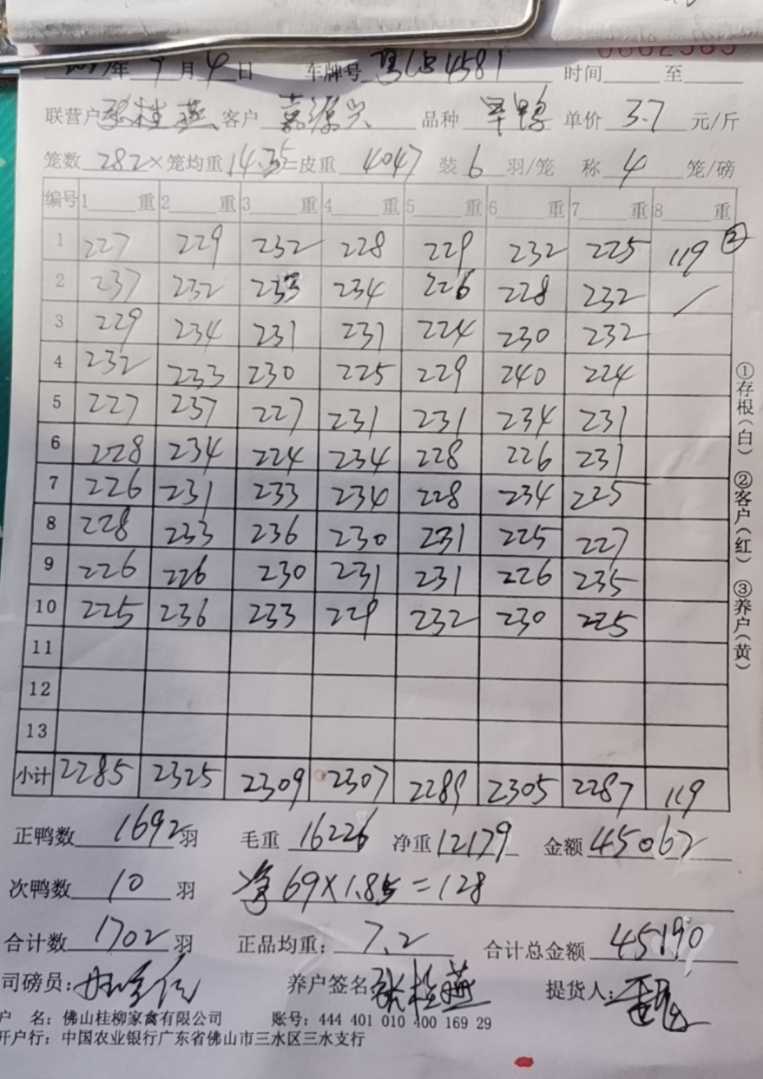 年 9 月 4 日 车牌号 4581 时间 至
联营户 张桂燕 客户 嘉源兴 品种 单价 3.7 元/斤
笼数 282 × 笼均重 14.35 = 皮重 4047 装 6 羽/笼 称 4 笼/磅
编号 1 重 2 重 3 重 4 重 5 重 6 重 7 重 8 重
1 227 229 232 228 229 232 225 119 ②
2 237 232 233 234 226 228 232 /
3 229 234 231 231 224 230 232
4 232 233 230 225 229 240 224
5 227 237 227 231 231 234 231
6 228 234 224 234 228 226 231
7 226 231 233 234 228 234 225
8 228 233 236 230 231 225 227
9 226 226 230 231 231 226 235
10 225 236 233 229 232 230 225
11
12
13
小计 2285 2325 2309 2307 2289 2305 2287 119
正鸭数 1692 羽 毛重 16226 净重 12179 金额 45062
次鸭数 10 羽 净 69×1.85=128
合计数 1702 羽 正品均重: 7.2 合计总金额 45190
司磅员: 养户签名 张桂燕 提货人:
户 名: 佛山桂柳家禽有限公司 账号: 444 401 010 400 169 29
开户行: 中国农业银行广东省佛山市三水区三水支行
①存根(白) ②客户(红) ③养户(黄)